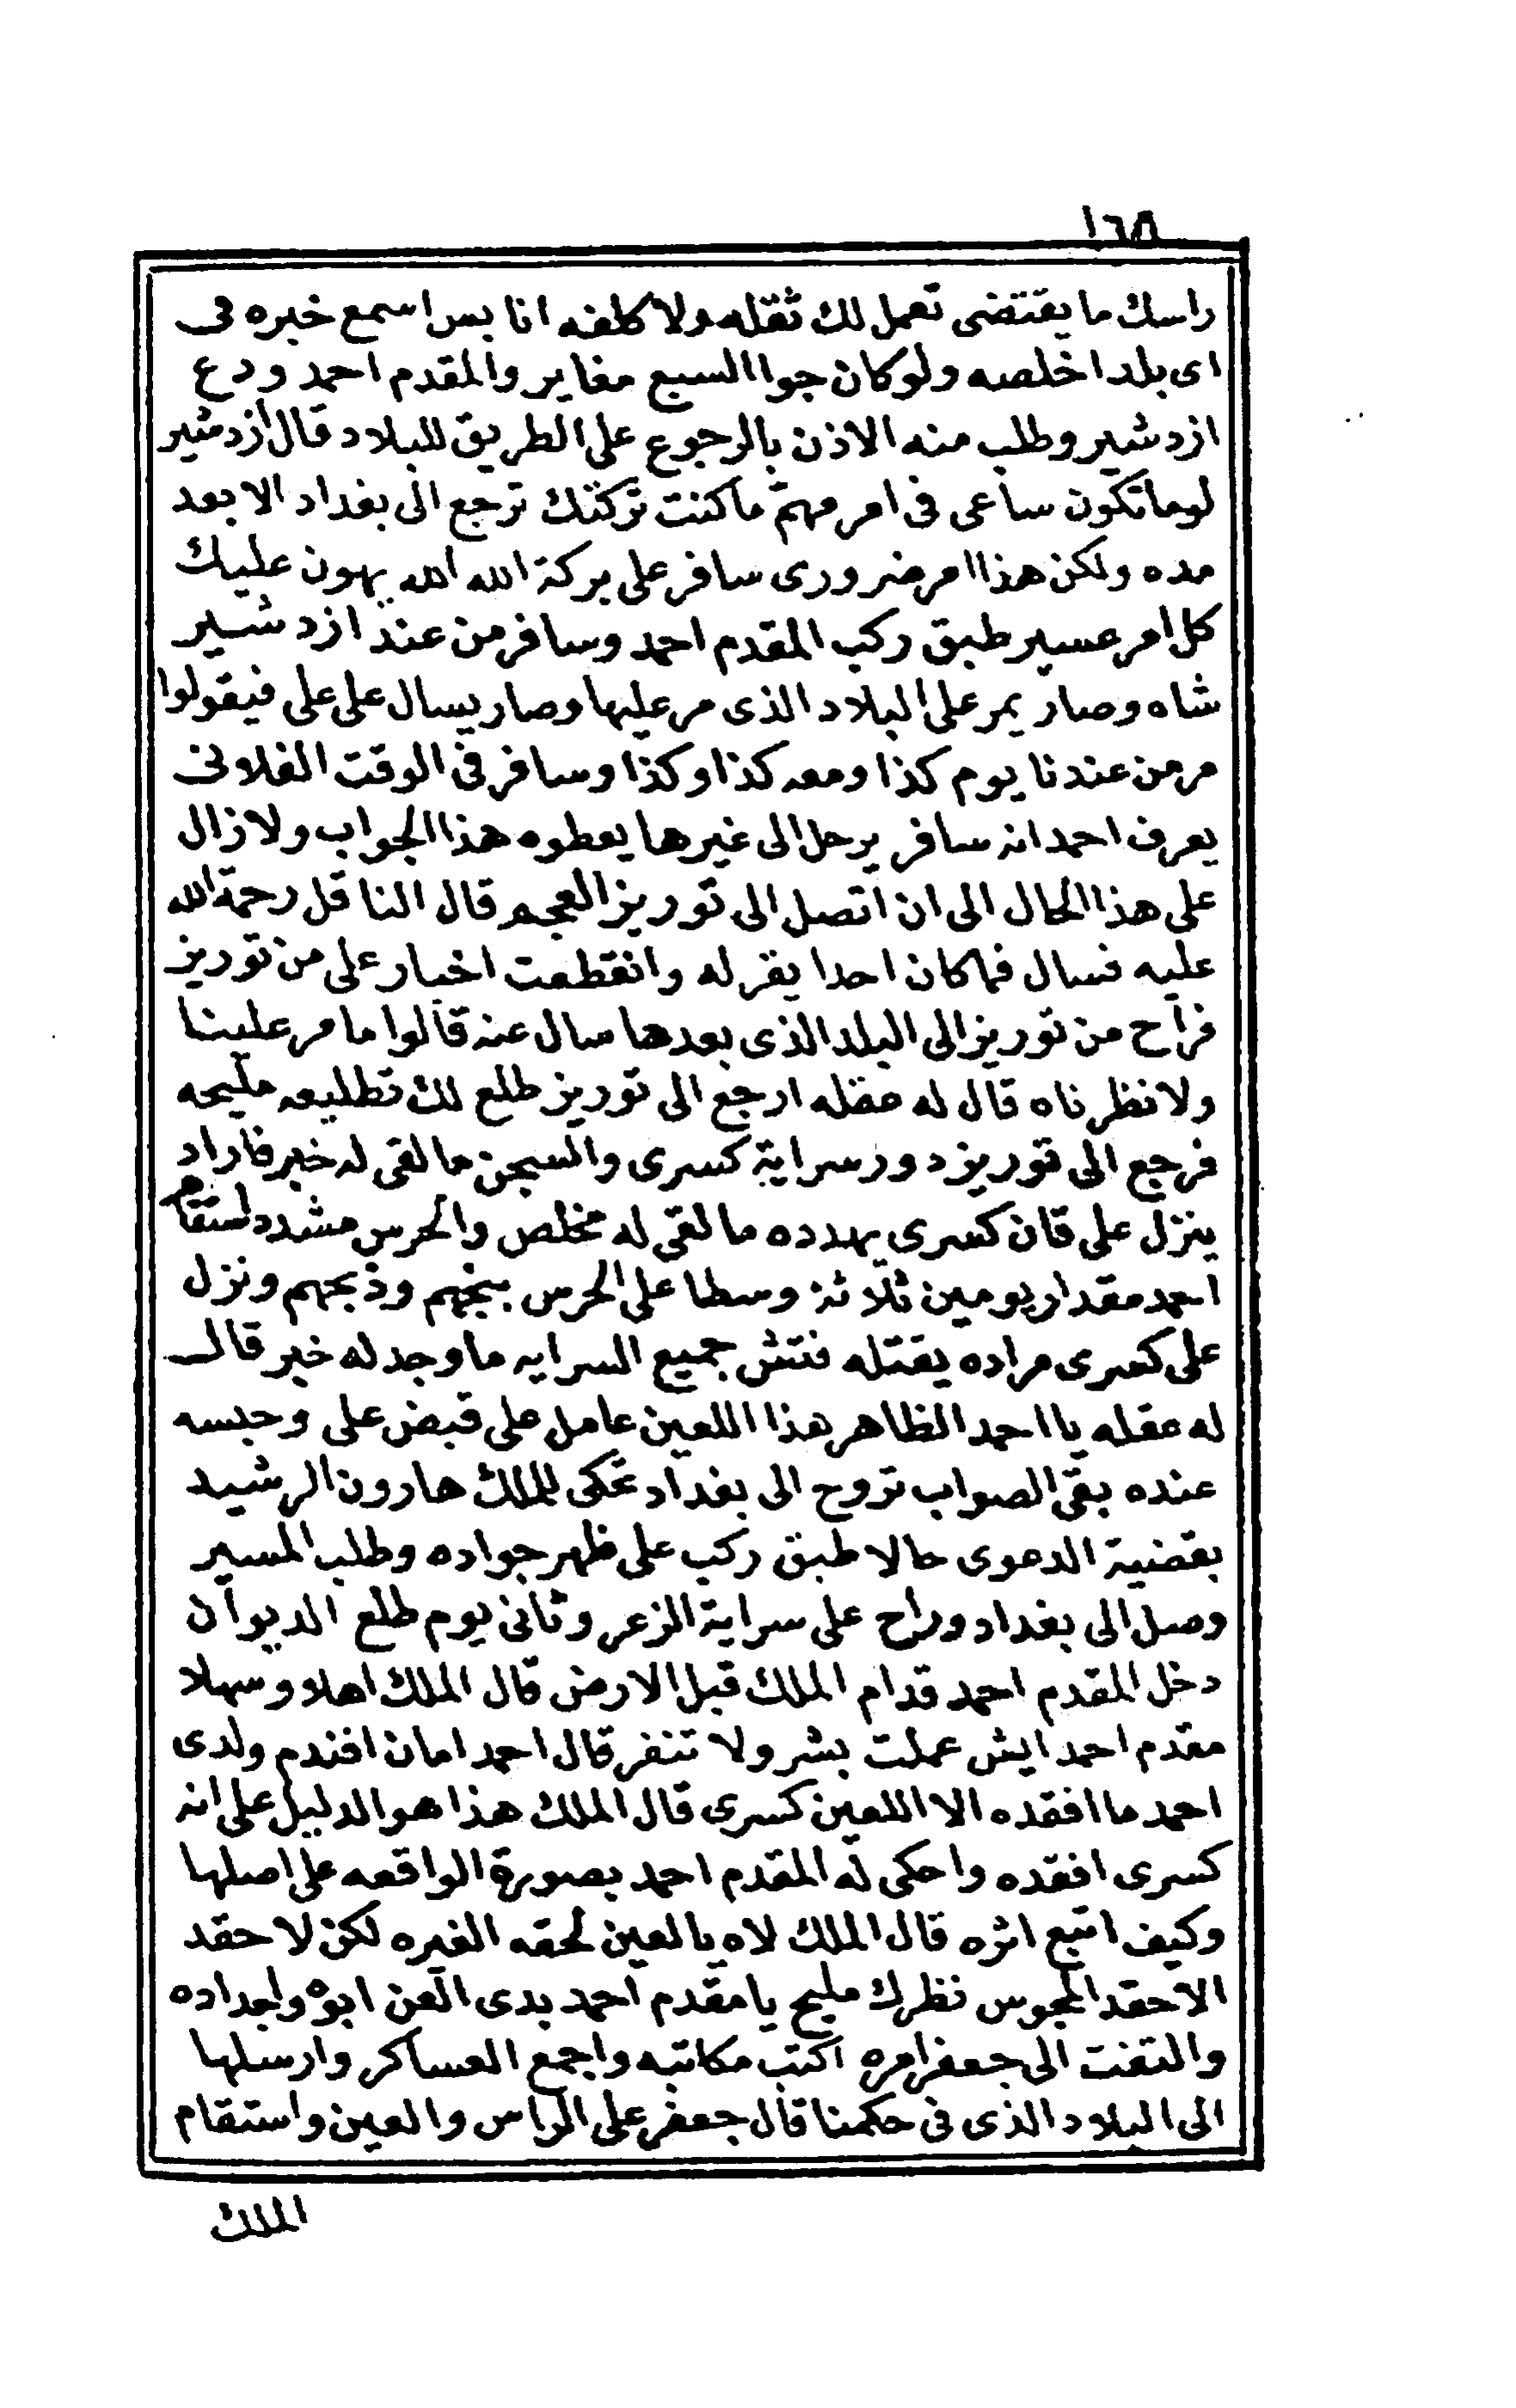 ١٦٨
راسك ما يقتضى تعمل لك ثقله ولا كلفه انا بس اسمع خبره فى
اى بلد اخلصه ولو كان جوا السبع مغاير والمقدم احمد ودع
ازدشير وطلب منه الاذن بالرجوع على الطريق للبلاد قال ازدشير
لوما تكون ساعى فى امر مهم ما كنت تركتك ترجع الى بغداد الا بعد
مده ولكن هذا امر ضرورى سافر على بركة الله الله يهون عليك
كل امر عسير طبق ركب المقدم احمد وسافر من عند ازدشير
شاه وصار يمر على البلاد الذى مر عليها وصار يسال على على فيقولوا
مر من عندنا يوم كذا ومعه كذا وكذا وسافر فى الوقت الفلانى
يعرف احمد انه سافر يرحل الى غيرها يعطوه هذا الجواب ولا زال
على هذا الحال الى ان اتصل الى توريز العجم قال الناقل رحمة الله
عليه فسال فما كان احدا يقر له وانقطعت اخبار على من توريز
فراح من توريز الى البلد الذى بعدها سال عنه قالوا ما مر علينا
ولا نظرناه قال له عقله ارجع الى توريز طلع لك تطليعه مليحه
فرجع الى توريز دور سراية كسرى والسجن ما لقى له خبر فاراد
ينزل على قان كسرى يهدده ما لقى له مخلص والحرس مشدد استقام
احمد مقدار يومين ثلاثة وسطا على الحرس بنجهم وذبحهم ونزل
على كسرى مراده يقتله فتش جميع السرايه ما وجد له خبر قال
له عقله يا احمد الظاهر هذا اللعين عامل على قبض على وحبسه
عنده بقى الصواب تروح الى بغداد تحكى للملك هارون الرشيد
بقضية الدعوى حالا طبق ركب على ظهر جواده وطلب المسير
وصل الى بغداد وراح على سراية الزعر وثانى يوم طلع الديوان
دخل المقدم احمد قدام الملك قبل الارض قال الملك اهلا وسهلا
مقدم احمد ايش عملت بشر ولا تنفر قال احمد امان افندم ولدى
احمد ما افقده الا اللعين كسرى قال الملك هذا هو الدليل على انه
كسرى افقده واحكى له المقدم احمد بصورة الواقعه على اصلها
وكيف اتبع اثره قال الملك لاه يا لعين لحقه الغيره لكن لا حقد
الا حقد المجوس نظرك مليح يا مقدم احمد بدى العن ابوه واجداده
والتفت الى جعفر امره اكتب مكاتبه واجمع العساكر وارسلها
الى البلاد الذى فى حكمنا قال جعفر على الراس والعين واستقام
الملك